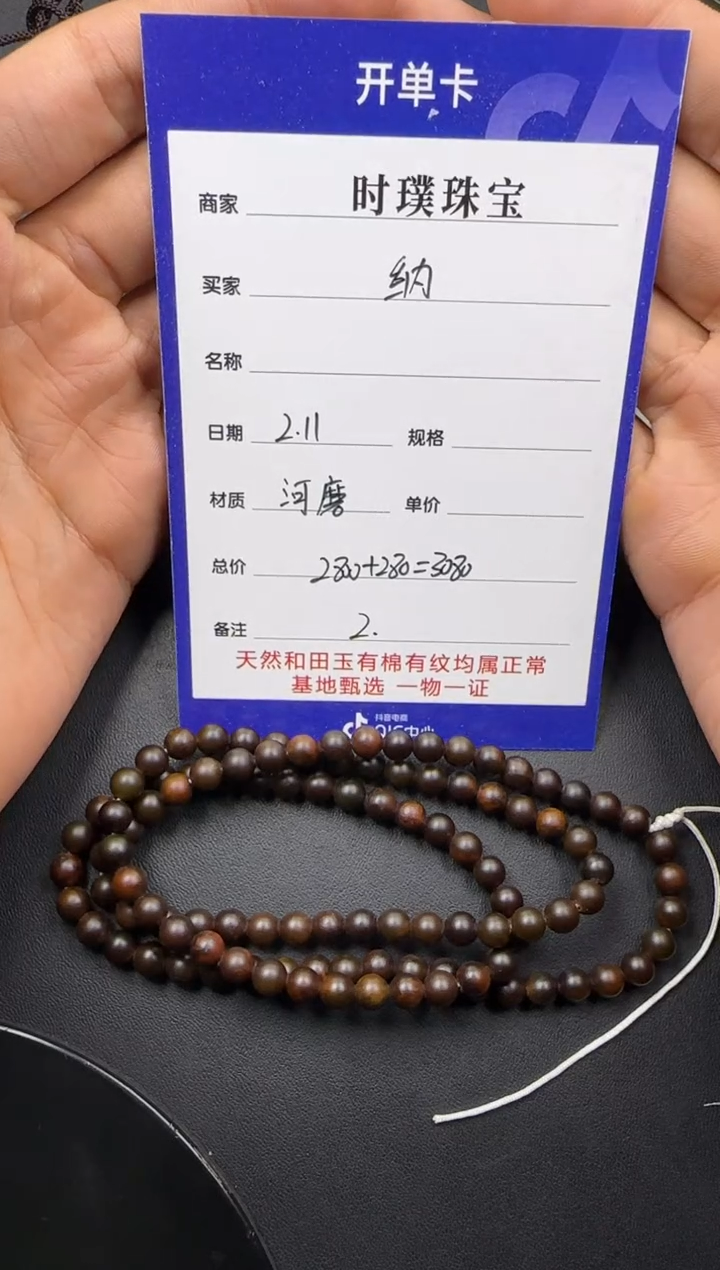 开单卡
商家 时璞珠宝
买家 纳
名称
日期 2.11 规格
材质 河磨 单价
总价 2800+280=3080
备注 2.
天然和田玉有棉有纹均属正常
基地甄选 一物一证
抖音电商
QIC中心